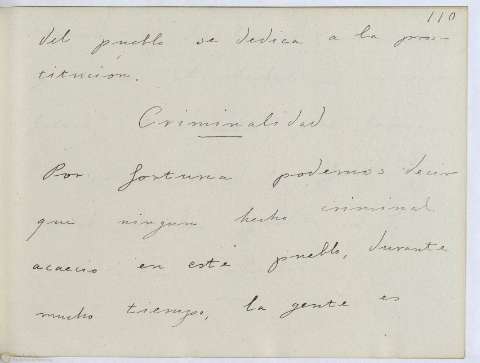 110
del pueblo se dedica a la pros-
titución.
Criminalidad
Por fortuna podemos decir
que ningun hecho criminal
acaecio en este pueblo, durante
mucho tiempo, la gente es